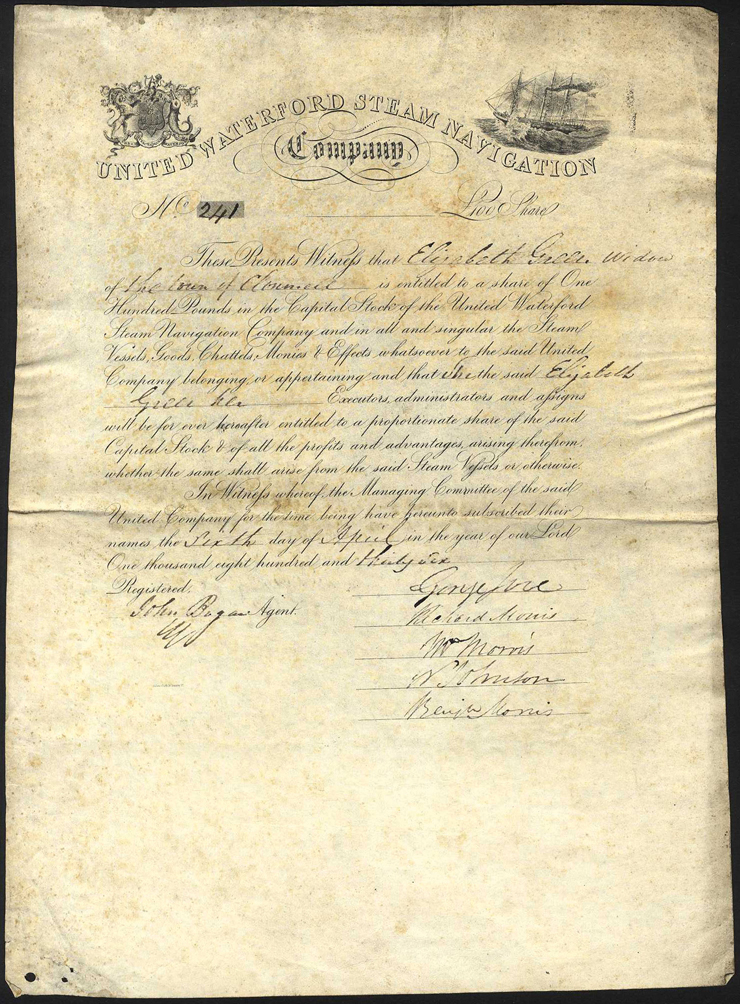 UNITED WATERFORD STEAM NAVIGATION
Company
No 241 £100 Share
These Presents Witness that Elizabeth Green Widow
of the town of Clonmell is entitled to a share of One
Hundred Pounds in the Capital Stock of the United Waterford
Steam Navigation Company and in all and singular the Steam
Vessels, Goods, Chattels, Monies & Effects whatsoever to the said United
Company belonging or appertaining and that She the said Elizabeth
Green her Executors, administrators and assigns
will be for ever hereafter entitled to a proportionate share of the said
Capital Stock & of all the profits and advantages, arising therefrom,
whether the same shall arise from the said Steam Vessels or otherwise.
In Witness whereof, the Managing Committee of the said
United Company for the time being have hereunto subscribed their
names the Sixth day of April in the year of our Lord
One thousand eight hundred and thirty six
Registered,
John Agent.
George
Richard Morris
Wm Morris
Benjn Morris